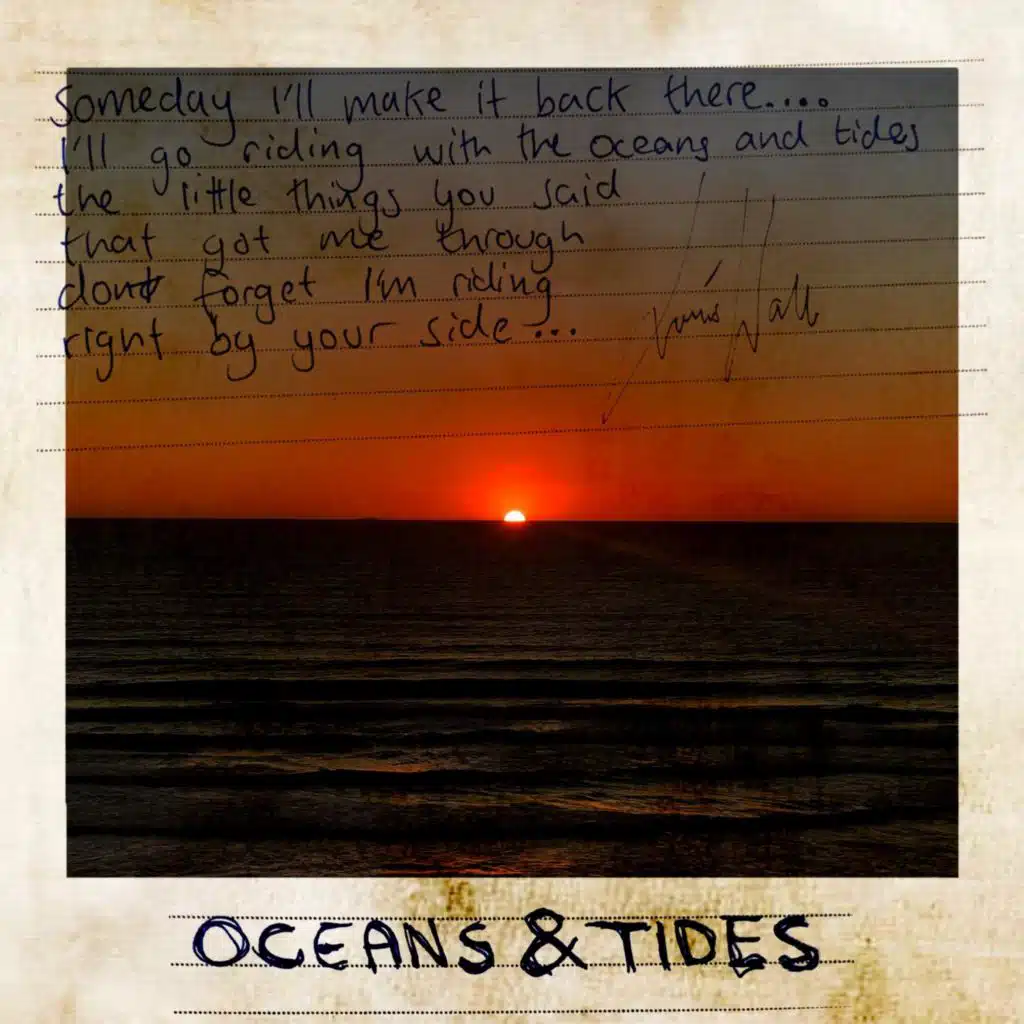 Someday I'll make it back there....
I'll go riding with the oceans and tides
the little things you said
that got me through
dont forget I'm riding
right by your side...
Hall
OCEANS & TIDES